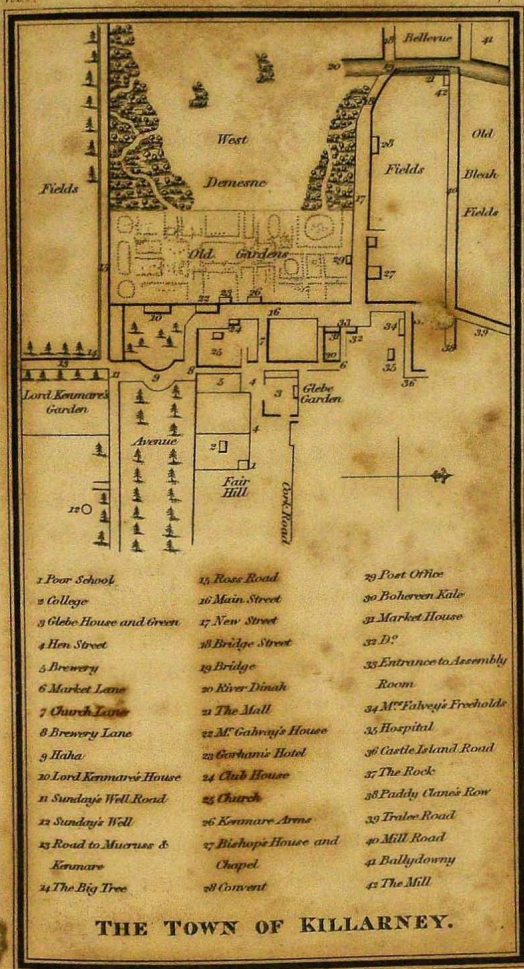 18
Bellevue
41
20
19
21
42
18
West
Demesne
28
Fields
Old
Bleah
Fields
Fields
40
17
Old Gardens
29
27
15
22
23
26
10
16
24
33
34
39
31
32
25
7
30
38
14
35
13
11
9
8
6
36
5
4
3
Glebe
Garden
Lord Kenmare's
Garden
Avenue
4
2
1
Fair
Hill
Cork Road
12
1 Poor School
2 College
3 Glebe House and Green
4 Hen Street
5 Brewery
6 Market Lane
7 Church Lane
8 Brewery Lane
9 Haha
10 Lord Kenmare's House
11 Sunday's Well Road
12 Sunday's Well
13 Road to Mucruss &
Kenmare
14 The Big Tree
15 Ross Road
16 Main Street
17 New Street
18 Bridge Street
19 Bridge
20 River Dinah
21 The Mall
22 Mr. Galway's House
23 Gorham's Hotel
24 Club House
25 Church
26 Kenmare Arms
27 Bishop's House and
Chapel
28 Convent
29 Post Office
30 Bohereen Kale
31 Market House
32 Do.
33 Entrance to Assembly
Room
34 Mrs. Falvey's Freeholds
35 Hospital
36 Castle Island Road
37 The Rock
38 Paddy Clane's Row
39 Tralee Road
40 Mill Road
41 Ballydowny
42 The Mill
THE TOWN OF KILLARNEY.